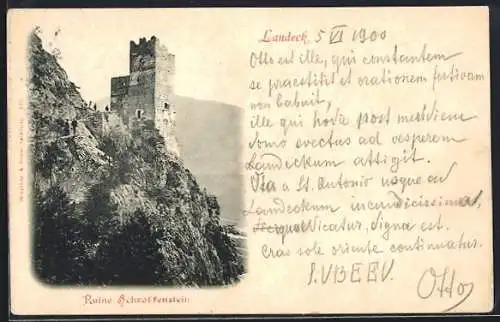 Landeck, 5 VI 1900
Otto est ille, qui constantem
se praestitit et orationem furtivam
non habuit,
ille qui hodie post meridiem
domo evectus ad vesperem
Landeckum attigit.
Via a St. Antonio usque ad
Landeckum incundicissima,
vicatur, digna est.
Cras sole oriente continuatur.
S.V.B.E.E.V.
Otto
Ruine Schrofenstein.